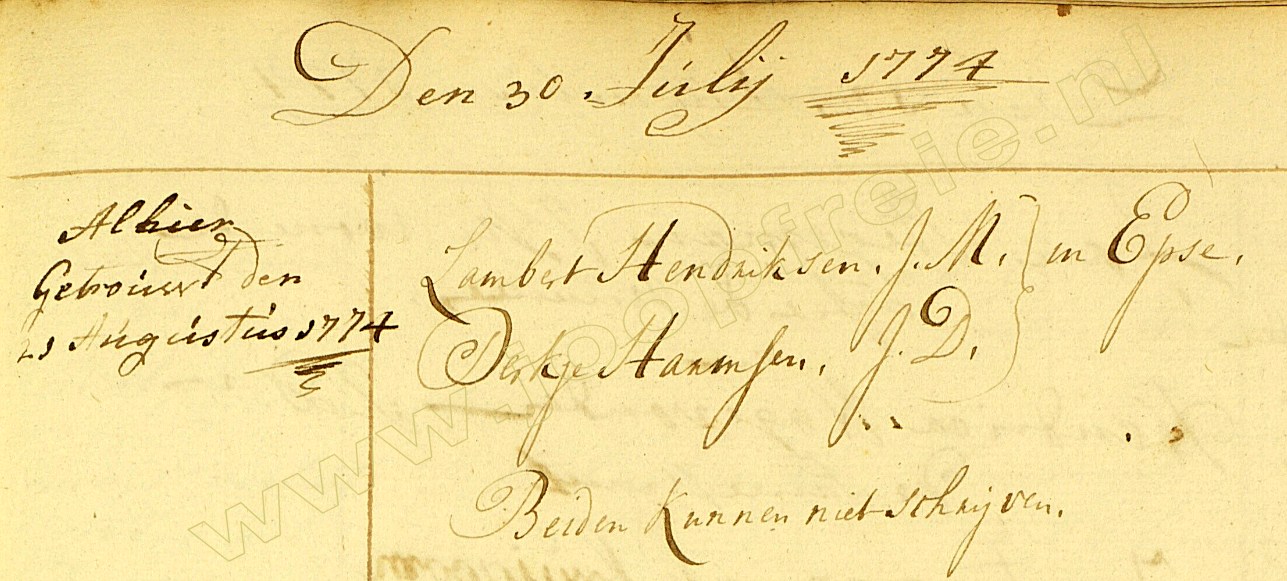 Den 30 Julij 1774
Alhier
Getrouwt den
21 Augustus 1774
Lambert Hendriksen. J. M. } in Epse.
Derkje Harmsen. J. D.
Beiden kunnen niet schrijven.
www.joopfreie.nl